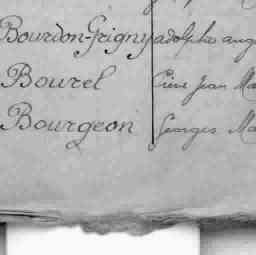 Bourdon-Grigny adolphe aug
Bourel Jean Ma
Bourgeon Georges Ma